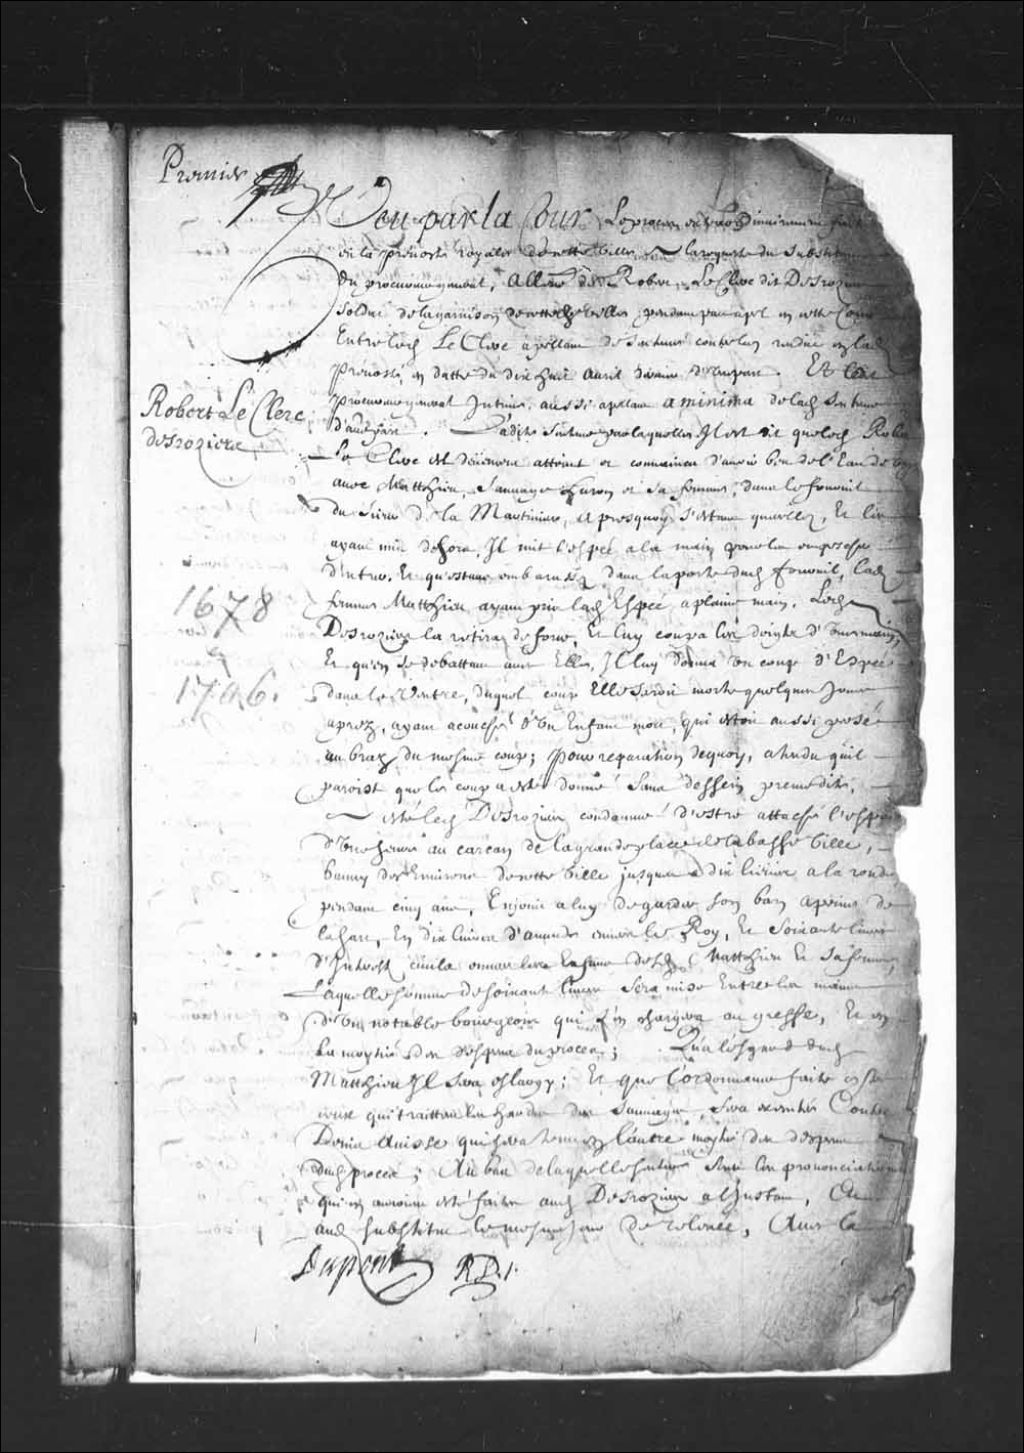 Premier
Veu par la Cour Le proces extraordinairement fait
en la prevosté royalle de cette ville, a la requeste du substitut
du procureur general, allencontre de Robert LeClerc dit Desrozier
soldat de la garnison de cette ville, pendant par apel en cette Cour
Entre led LeClerc apellant de sentence contre luy rendue en lad
Prevosté, en datte du dix huit avril dernier d'une part. Et led
Robert LeClerc
procureur general Intimé, aussi apellant a minima de lad sentence
desroziere
d'autre part. Ladite sentence par laquelle Il est dit que led Robert
Le Clerc est deuement atteint et convaincu d'avoir beu de l'Eau de vie
avec Matthieu, sauvage huron et sa femme, dans le fournil
du sieur de la Martiniere, apres quoy s'estant querellez, Et les
ayant mis dehors, Il mit l'espée a la main pour les empescher
d'entrer, Et qu'estant dans la porte dud fournil, lad
1678
femme Matthieu ayant pris lad Espée a plaine main, Led
Desrozier la retira de force, Et luy coupa les doigts d'une main,
Et qu'en se debattant avec Elle, Il luy donna un coup d'Espée
1746.
dans le Ventre, duquel coup Elle seroit morte quelques Jours
aprez, ayant acouché d'un Enfant mort, qui estoit aussi
au bras du mesme coup; pour reparation dequoy, attendu qu'il
paroist que le coup a esté donné sans dessein premedité,
esté led Desrozier condamné d'estre attaché l'espace
d'une heure au carcan de la grande place de la basse ville,
banny des Environs de cette ville jusques a dix lieües a la ronde
pendant cinq ans, Enjoint a luy de garder son ban a peine de
la hart, En dix livres d'amende envers le Roy, Et soixante livres
d'Interest civils envers les Enfans dud Matthieu Et sa femme,
Laquelle somme de soixante livres sera mise Entre les mains
d'un notable bourgeois qui s'en chargera au greffe, Et en
La moytié des despens du procez; Qu'a l'esgard dud
Matthieu Il sera eslargy; Et que l'ordonnance faite
ceux qui traittent les hardes des sauvages, sera executée Contre
Denis Avisse qui sera tenu en l'autre moytié des despens
dud procez; Au bas de laquelle sentence sont les prononciations
qui en auroient esté faites aud Desrozier a l'Instant, Et
aud substitut le mesme jour de relevée, Avec la
Dupont R.D.